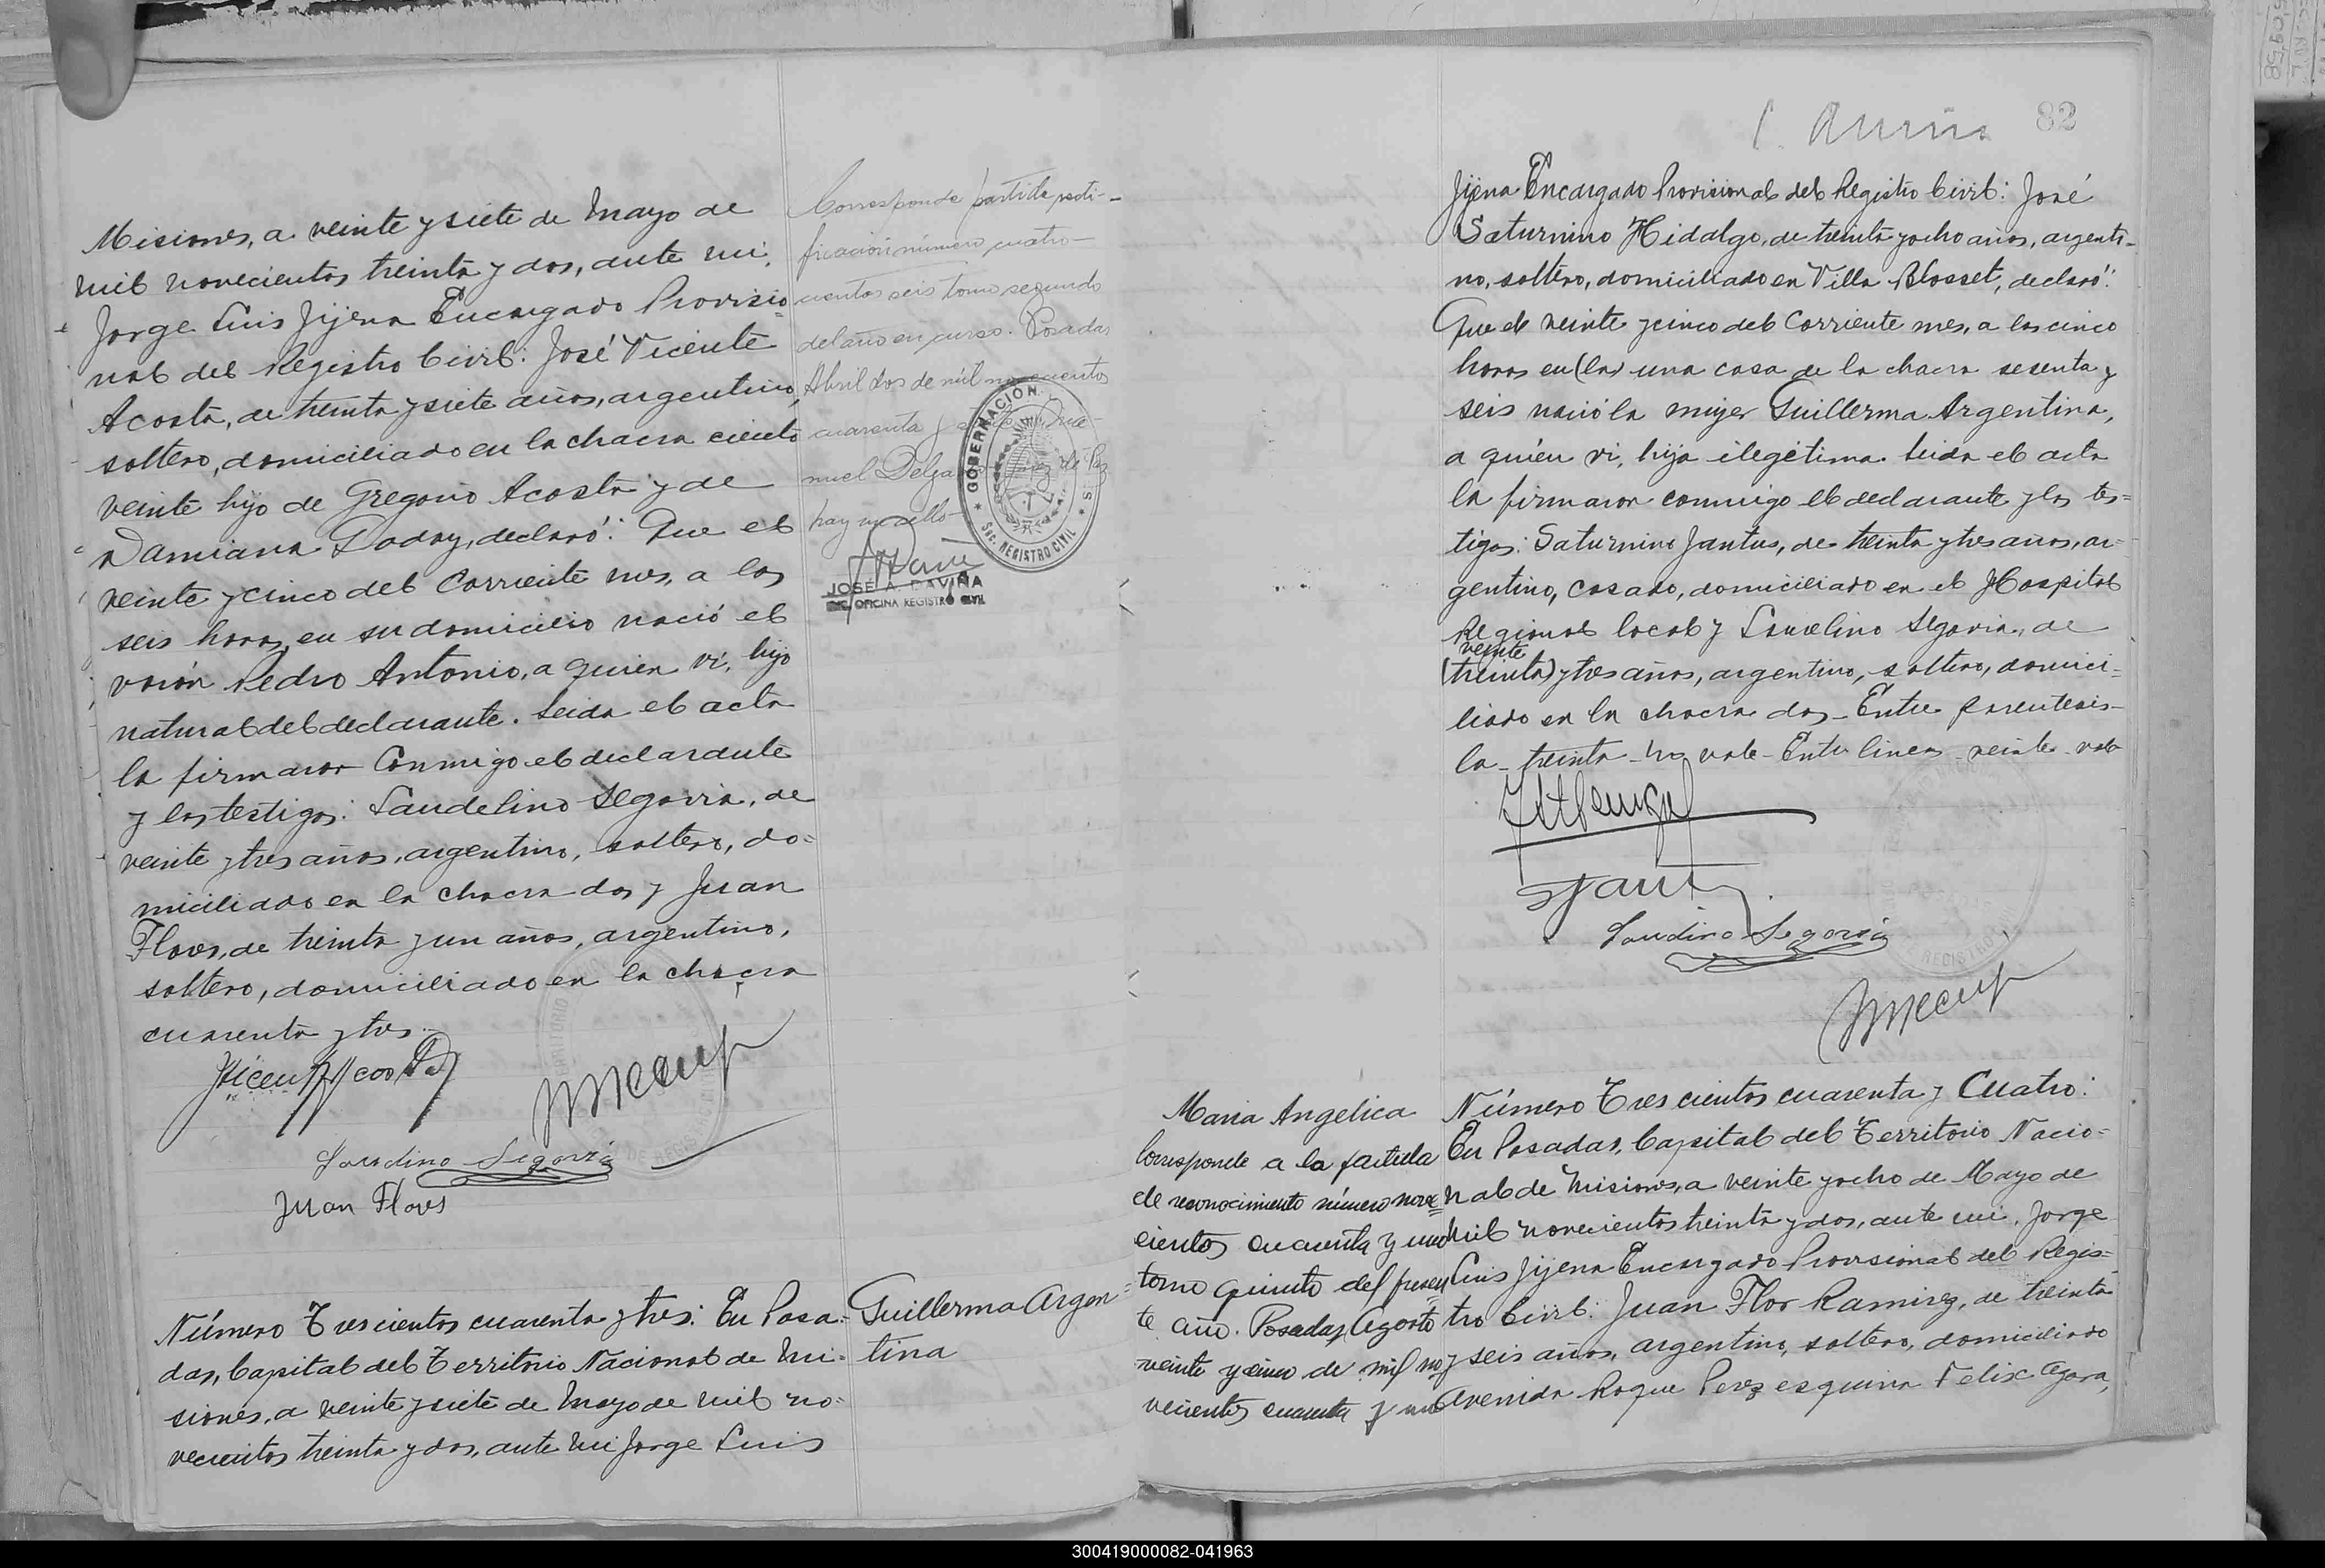 Misiones, a veinte y siete de Mayo de
mil novecientos treinta y dos, ante mi,
Jorge Luis Jijena Encargado Provisio=
nal del Registro Civil: José Vicente
Acosta, de treinta y siete años, argentino,
soltero, domiciliado en la chacra ciento
veinte hijo de Gregorio Acosta y de
Damiana Goday, declaró: Que el
veinte y cinco del Corriente mes, a las
seis horas, en su domicilio nació el
varón Pedro Antonio, a quien vi, hijo
natural del declarante. Leida el acta
la firmaron Conmigo el declarante
y los testigos: Laudelino Segovia, de
veinte y tres años, argentino, soltero, do=
miciliado en la chacra dos y Juan
Flores, de treinta y un años, argentino,
soltero, domiciliado en la chacra
cuarenta y tres.
Laudino Segovia
Juan Flores
Corresponde partida recti-
ficación número cuatro-
cientos seis tomo segundo
del año en curso. Posadas
Abril dos de mil novecientos
cuarenta y
nuel Delgado Juez de Paz
hay un sello
GOBERNACION
SUC. REGISTRO CIVIL
JOSÉ A. DAVIÑA
ENC. OFICINA REGISTRO CIVIL
Número Trescientos cuarenta y tres: En Posa=
das, Capital del Territorio Nacional de Mi=
siones, a veinte y siete de Mayo de mil no=
vecientos treinta y dos, ante mi Jorge Luis
Guillerma Argen=
tina
82
Jijena Encargado Provisional del Registro Civil: José
Saturnino Hidalgo, de treinta y ocho años, argenti=
no, soltero, domiciliado en Villa Blosset, declaró:
Que el veinte y cinco del Corriente mes, a las cinco
horas en (la) una casa de la chacra sesenta y
seis nació la mujer Guillerma Argentina,
a quién vi, hija ilegítima. Leida el acta
la firmaron conmigo el declarante y los tes=
tigos: Saturnino Jantus, de treinta y tres años, ar=
gentino, casado, domiciliado en el Hospital
Regional local y Laudelino Segovia, de
veinte
(treinta) y tres años, argentino, soltero, domici=
liado en la chacra dos - Entre parentesis -
la - treinta - no vale - Entre lineas - veinte - vale
Laudino Segovia
Maria Angelica
Corresponde a la partida
de reconocimiento número nove=
cientos cuarenta y uno
tomo quinto del presen=
te año. Posadas, Agosto
veinte y cinco de mil no
vecientos cuarenta y uno
Número Trescientos cuarenta y Cuatro:
En Posadas, Capital del Territorio Nacio=
nal de Misiones, a veinte y ocho de Mayo de
mil novecientos treinta y dos, ante mi, Jorge
Luis Jijena Encargado Provisional del Regis=
tro Civil: Juan Flor Ramirez, de treinta
y seis años, argentino, soltero, domiciliado
Avenida Roque Perez esquina Felix Azara,
300419000082-041963